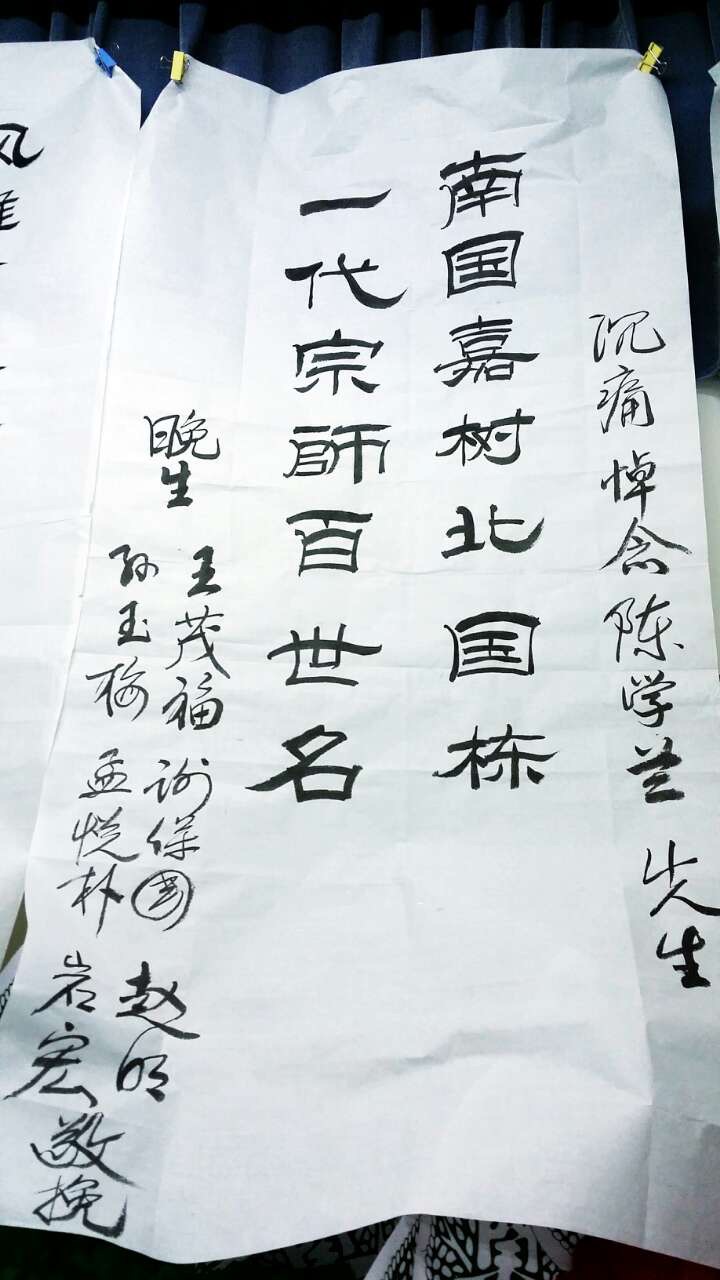 沉痛悼念陈学兰先生
南国嘉树北国栋
一代宗師百世名
晚生
王茂福 谢保国 赵明
孙玉梅 孟悦朴 岩宏敬挽
风